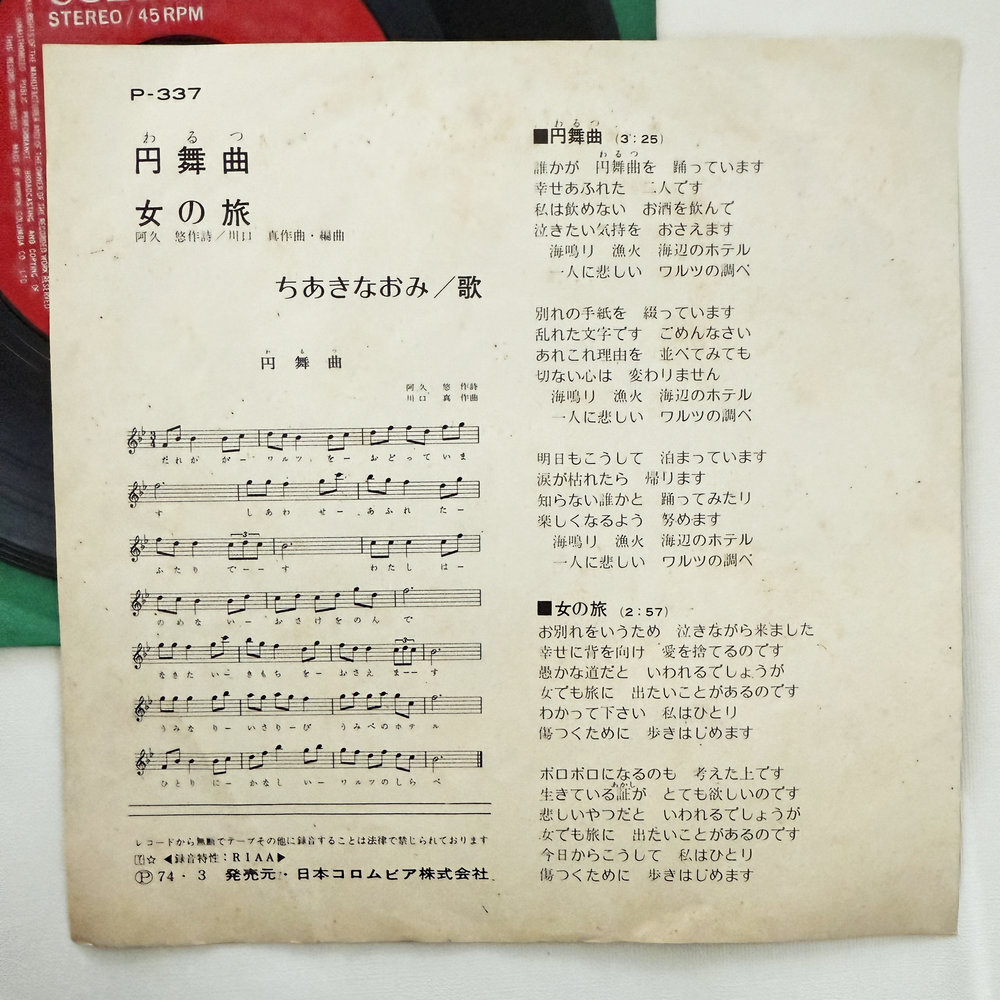 STEREO/45 RPM
P-337
わるつ
円舞曲
女の旅
阿久 悠作詩/川口 真作曲・編曲
ちあきなおみ/歌
わるつ
円舞曲
阿久 悠 作詩
川口 真 作曲
だれかが がー ワルツ をー おどっていま
す しあわ せー あふれ たー
ふたり でーーす わたし はー
のめない いー おさけをのんで
なきた いー きもち をー おさえ まーーす
うみなり りー いさりーび うみべのホテル
ひとり にー かなし いー ワルツのしらべ
レコードから無断でテープその他に録音することは法律で禁じられております
Ⓨ☆ ◀録音特性:RIAA▶
Ⓟ74・3 発売元・日本コロムビア株式会社
わるつ
■円舞曲 (3:25)
わるつ
誰かが 円舞曲を 踊っています
幸せあふれた 二人です
私は飲めない お酒を飲んで
泣きたい気持を おさえます
海鳴り 漁火 海辺のホテル
一人に悲しい ワルツの調べ
別れの手紙を 綴っています
乱れた文字です ごめんなさい
あれこれ理由を 並べてみても
切ない心は 変わりません
海鳴り 漁火 海辺のホテル
一人に悲しい ワルツの調べ
明日もこうして 泊まっています
涙が枯れたら 帰ります
知らない誰かと 踊ってみたり
楽しくなるよう 努めます
海鳴り 漁火 海辺のホテル
一人に悲しい ワルツの調べ
■女の旅 (2:57)
お別れをいうため 泣きながら来ました
幸せに背を向け 愛を捨てるのです
愚かな道だと いわれるでしょうが
女でも旅に 出たいことがあるのです
わかって下さい 私はひとり
傷つくために 歩きはじめます
ボロボロになるのも 考えた上です
あかし
生きている証が とても欲しいのです
悲しいやつだと いわれるでしょうが
女でも旅に 出たいことがあるのです
今日からこうして 私はひとり
傷つくために 歩きはじめます